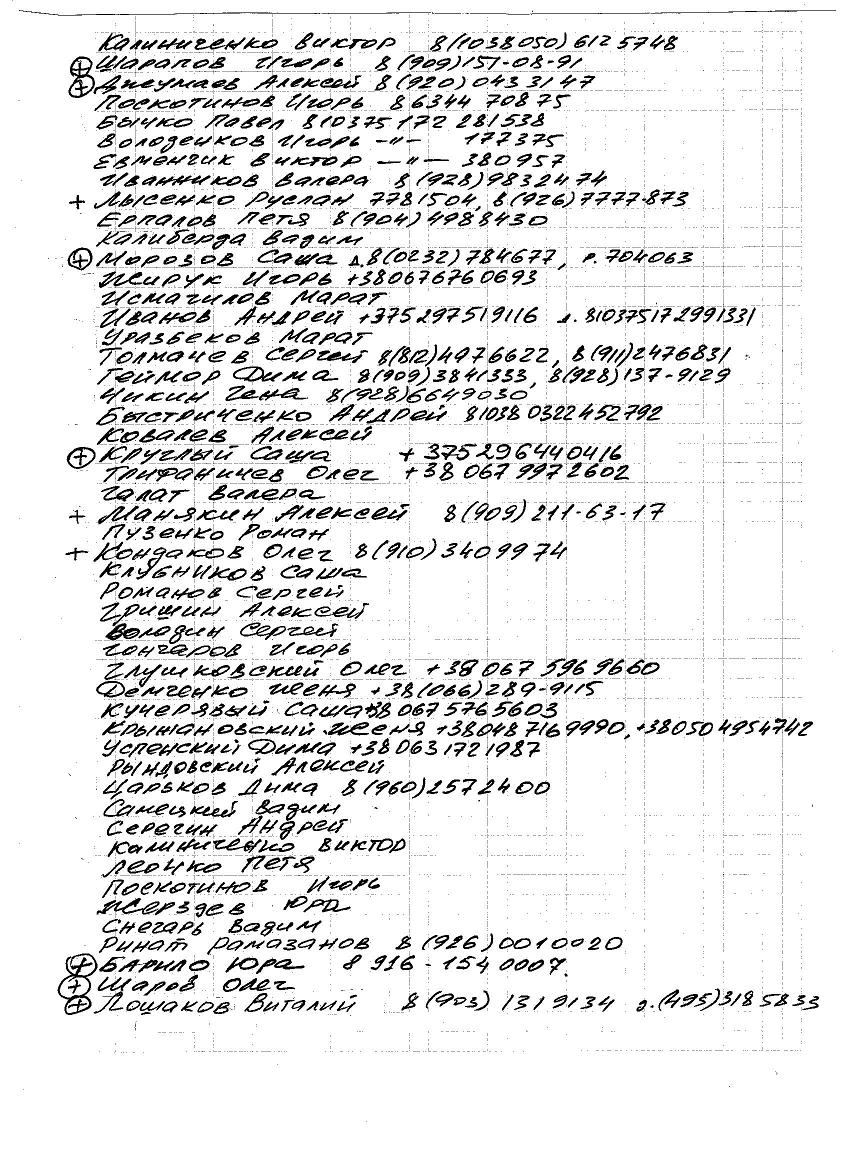 Калиниченко Виктор 8(1038050)6125748
⊕ Шарапов Игорь 8(909)151-08-91
⊕ Джеумаев Алексей 8(920)0433147
Поскотинов Игорь 8 6344 70875
Бычко Павел 810375 172 281538
Володенков Игорь -"- 177375
Евменчик Виктор -"- 380957
Иванников Валера 8(928)9832474
+ Лысенко Руслан 7781504, 8(926)7777-873
Ерпалов Петя 8(904)4988430
Калиберда Вадим
⊕ Морозов Саша д.8(0232)784677, р.704063
Жирук Игорь +380676760693
Исмагилов Марат
Иванов Андрей +375297519116 д. 810375172991331
Уразбеков Марат
Толмачев Сергей 8(812)4976622, 8(911)2476831
Геймор Дима 8(909)3841333, 8(928)137-9129
Чикин Гена 8(928)6649030
Быстриченко Андрей 81038 0322452792
Ковалев Алексей
⊕ Круглый Саша +375296440416
Трифаничев Олег +38 067 9972602
Галат Валера
+ Манякин Алексей 8(909)211-63-17
Пузенко Роман
+ Кондаков Олег 8(910)3409974
Клубников Саша
Романов Сергей
Гришин Алексей
Володин Сергей
Гончаров Игорь
Глушковский Олег +38 067 596 9660
Демченко Женя +38(066)289-9115
Кучерявый Саша +38 067 576 5603
Крыжановский Женя +38048 7169990, +380504954742
Успенский Дима +38 063 1721987
Рындовский Алексей
Царьков Дима 8(960)2572400
Санецкий Вадим
Серегин Андрей
Калиниченко Виктор
Леонко Петя
Поскотинов Игорь
Жерздев Юра
Снегарь Вадим
Ринат Рамазанов 8(926)0010020
⊕ Барило Юра 8 916-154 0007.
⊕ Шаров Олег
⊕ Лошаков Виталий 8(903) 1319134 д.(495)3185833